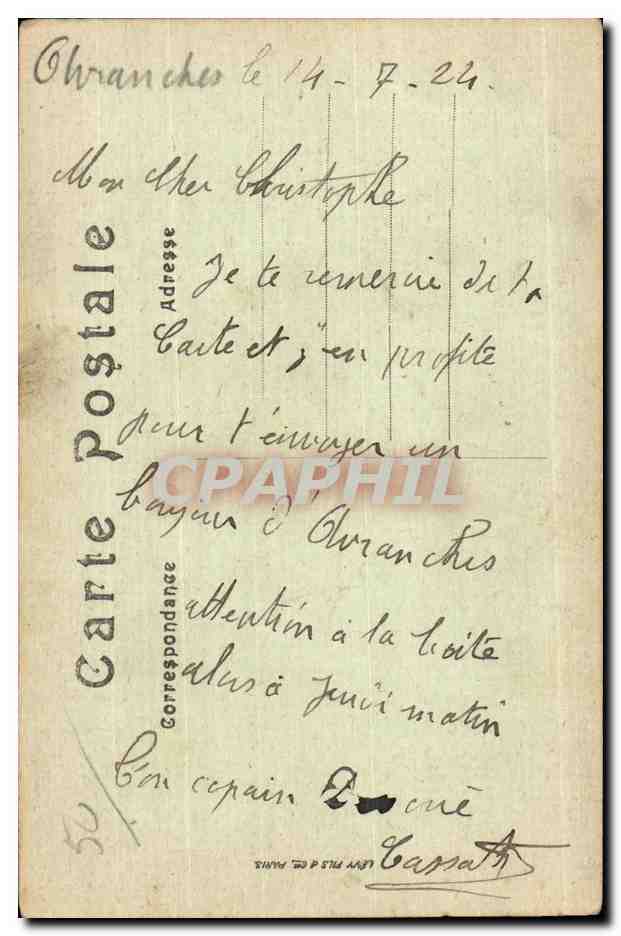 Avranches le 14-7-24.
Mon Cher Christophe
Je te remercie de ta
Carte et j'en profite
pour t'envoyer un
bonjour d'Avranches
attention à la boîte
alors à Jeudi matin
Ton copain
Carte Postale
Adresse
Correspondance
CPAPHIL
50
LÉVY FILS & Cie, PARIS.